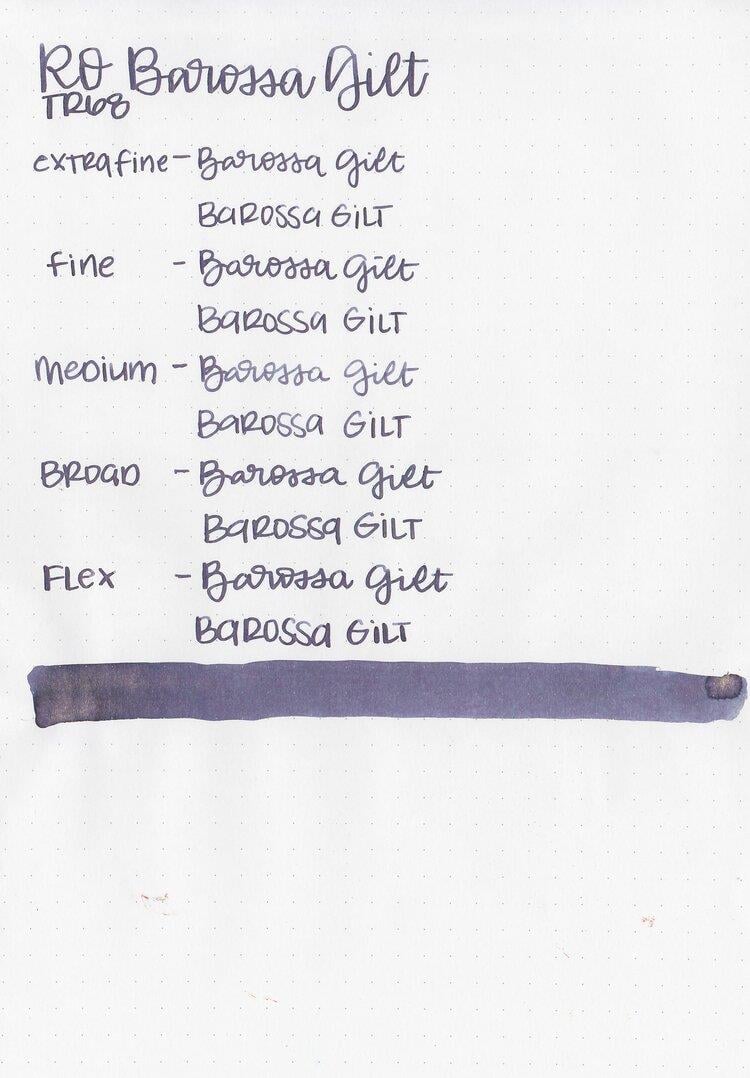 RO Barossa Gilt
TR68
extrafine - Barossa Gilt
BAROSSA GILT
fine - Barossa Gilt
BAROSSA GILT
Medium - Barossa Gilt
BAROSSA GILT
BROAD - Barossa Gilt
BAROSSA GILT
FLex - Barossa Gilt
BAROSSA GILT